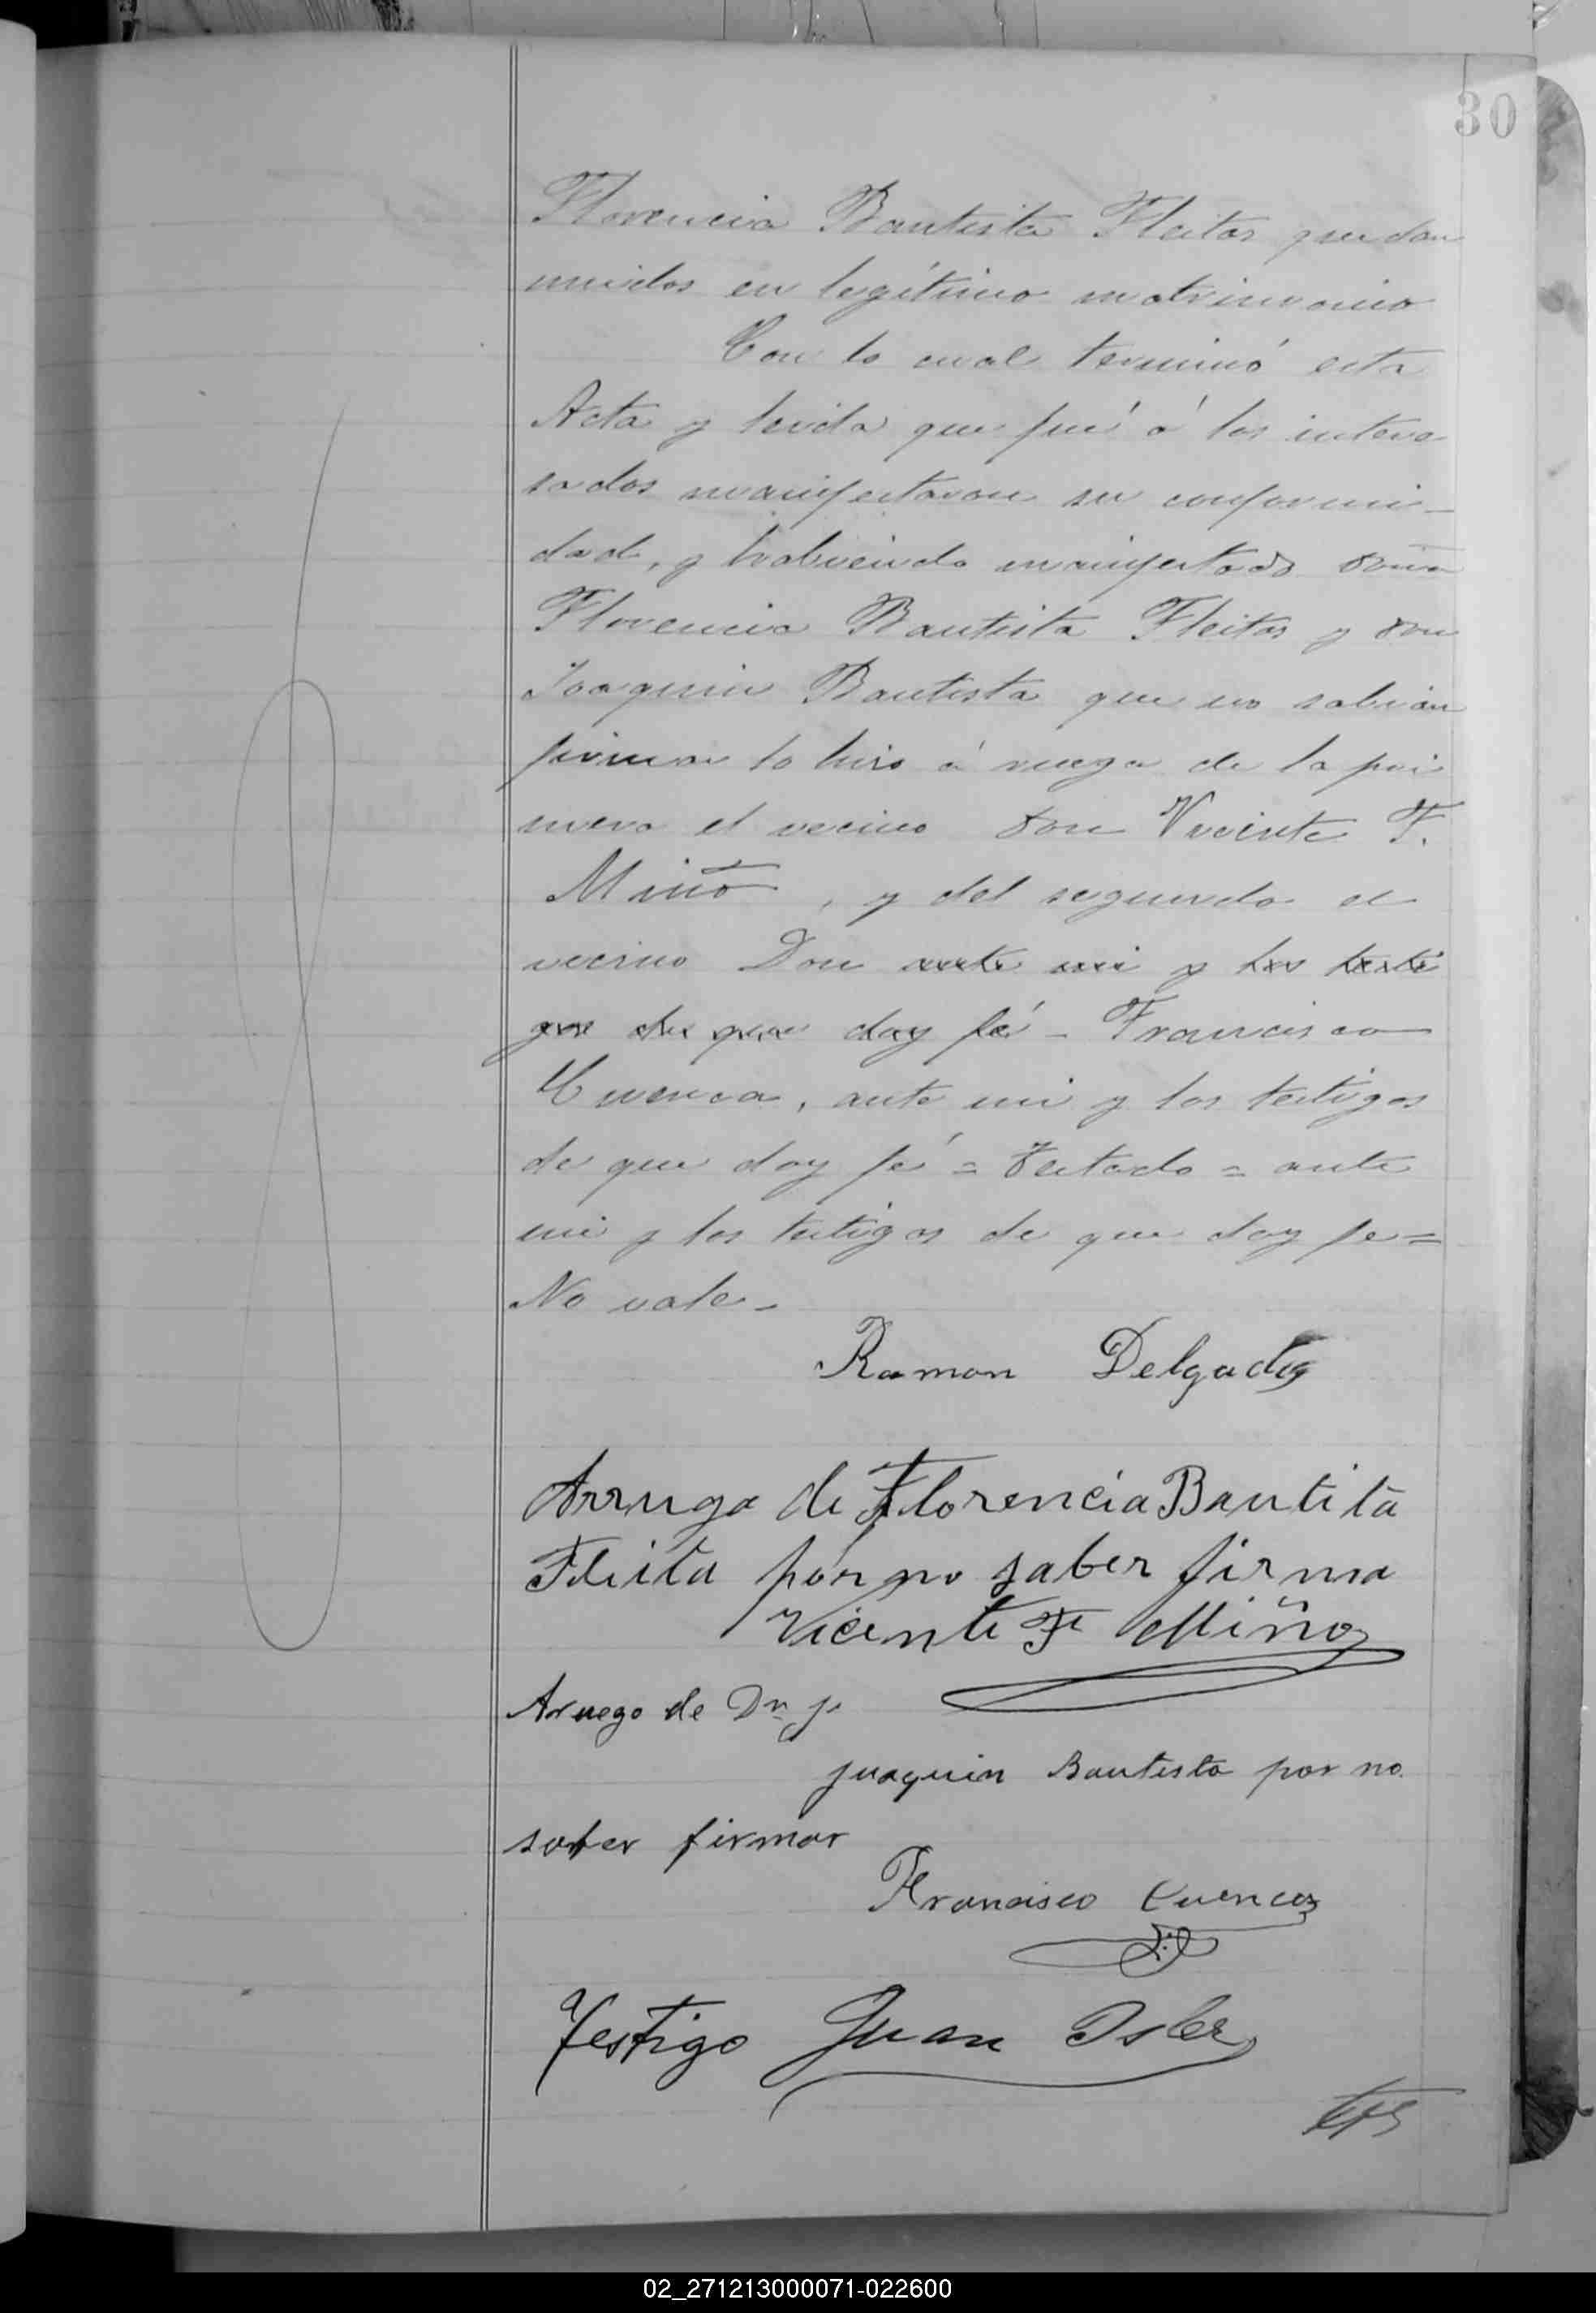 30
Florencia Bautista Fleitas quedan
unidos en legítimo matrimonio
Con lo cual terminó esta
Acta y leida que fué á los intere
sados manifestaron su conformi-
dad, y habiendo manifestado doña
Florencia Bautista Fleitas y don
Joaquin Bautista que no sabian
firmar lo hizo á ruego de la pri
mera el vecino don Vicente F.
Miño, y del segundo el
vecino Don ante mi y los testi
gos de que doy fé - Francisco
Cuenca, ante mi y los testigos
de que doy fé = Testado = ante
mi y los testigos de que doy fe =
No vale -
Ramon Delgado
Arruga de Florencia Bautita
Fleita por no saber firma
Vicente F. Miño
Aruego de Dn J.
Juaquin Bautista por no
saber firmar
Francisco Cuenca
Testigo Juan Isler
02_271213000071-022600